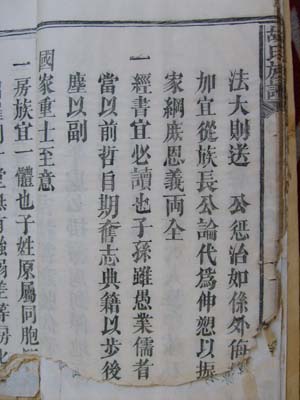 胡氏族譜
法大則送 公懲治如係外侮
加宜從族長公論代爲伸愬以振
家綱庶恩義両全
一經書宜必讀也子孫雖愚業儒者
當以前哲自期奮志典籍以步後
塵以副
國家重士至意
一房族宜一體也子姓原屬同胞